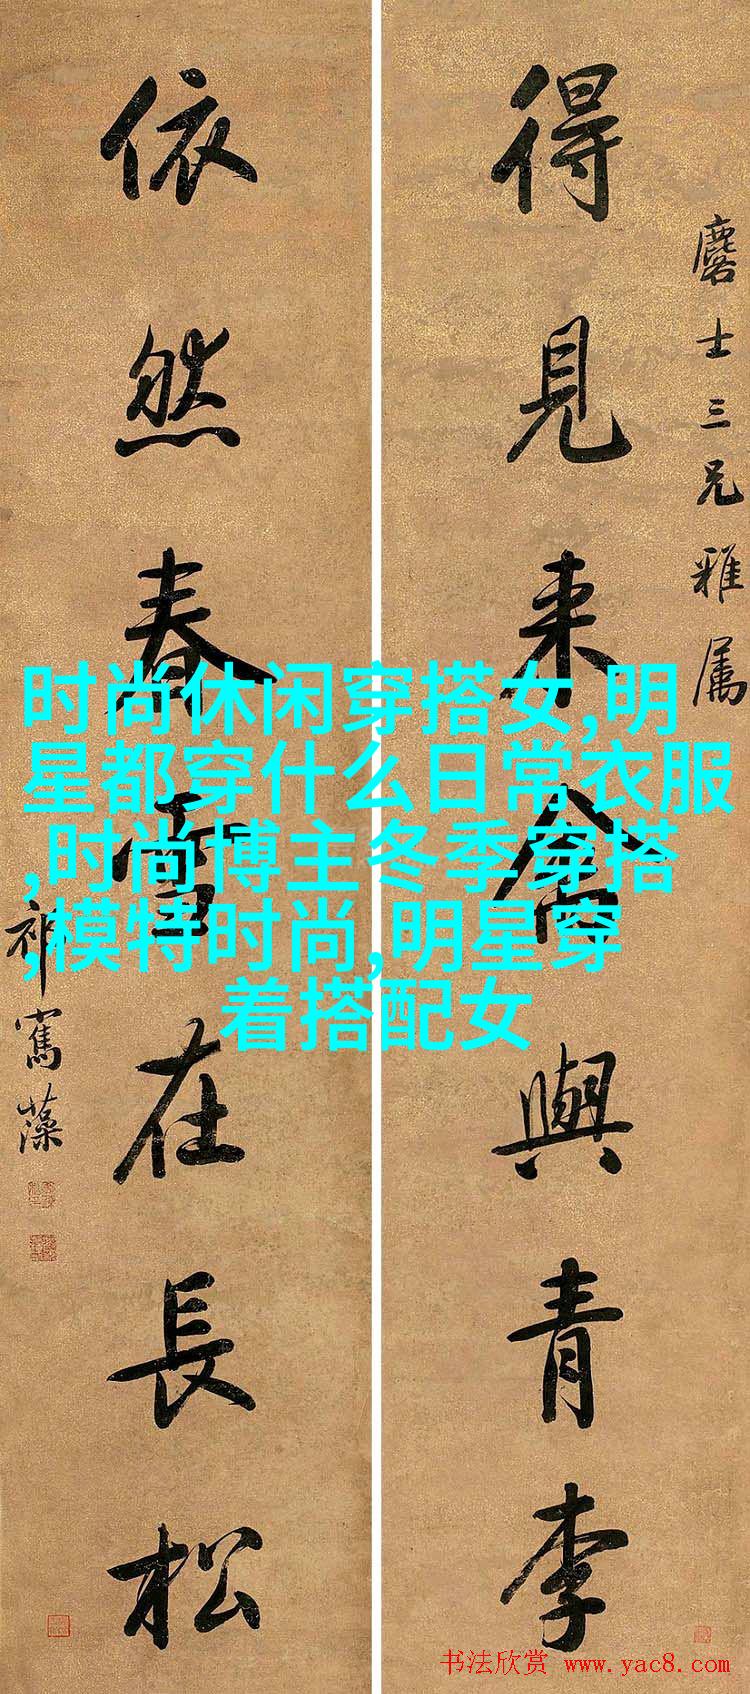 麐士三兄雅属
得見来禽與青李
依然春雪在長松
祁寯藻
时尚休闲穿搭女,明
星都穿什么日常衣服
,时尚博主冬季穿搭
,模特时尚,明星穿
着搭配女
书法欣赏 www.yac8.com